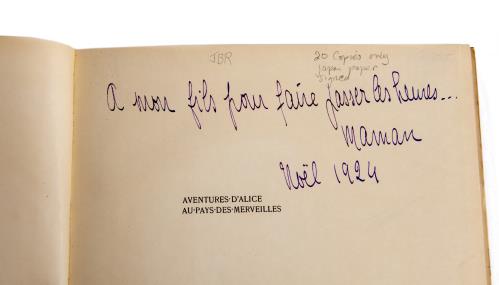 JBR
20 Copies only
japan paper
signed
A mon fils pour faire passer les heures...
Maman
Noël 1924
AVENTURES·D'ALICE
AU·PAYS·DES·MERVEILLES